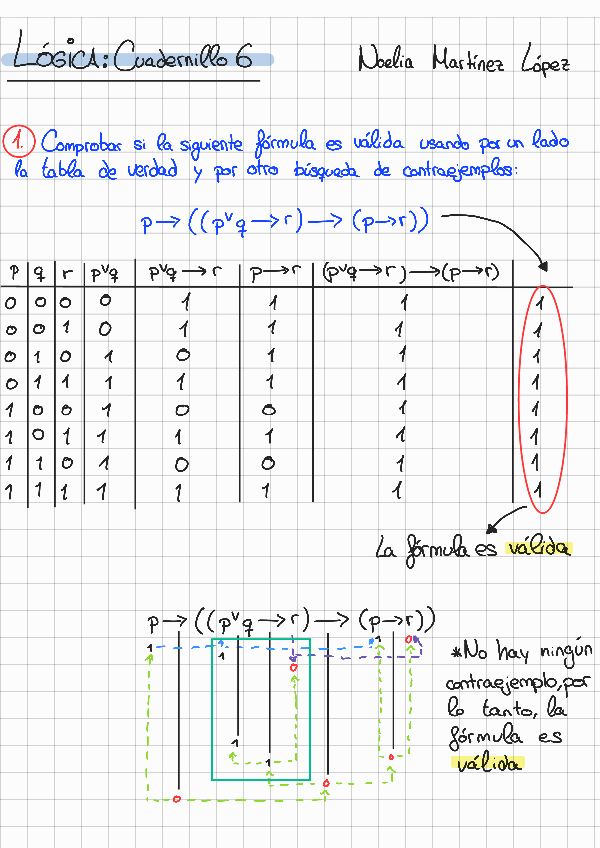 LÓGICA: Cuadernillo 6
Noelia Martínez López
1. Comprobar si la siguiente fórmula es válida usando por un lado
la tabla de verdad y por otro búsqueda de contraejemplos:
p → ((p ∨ q → r) → (p → r))
p q r p∨q p∨q → r p → r (p∨q → r) → (p → r)
0 0 0 0 1 1 1 1
0 0 1 0 1 1 1 1
0 1 0 1 0 1 1 1
0 1 1 1 1 1 1 1
1 0 0 1 0 0 1 1
1 0 1 1 1 1 1 1
1 1 0 1 0 0 1 1
1 1 1 1 1 1 1 1
La fórmula es válida
p → ((p ∨ q → r) → (p → r))
1 1 0 1 0
1 1 0
0 0
*No hay ningún
contraejemplo, por
lo tanto, la
fórmula es
válida